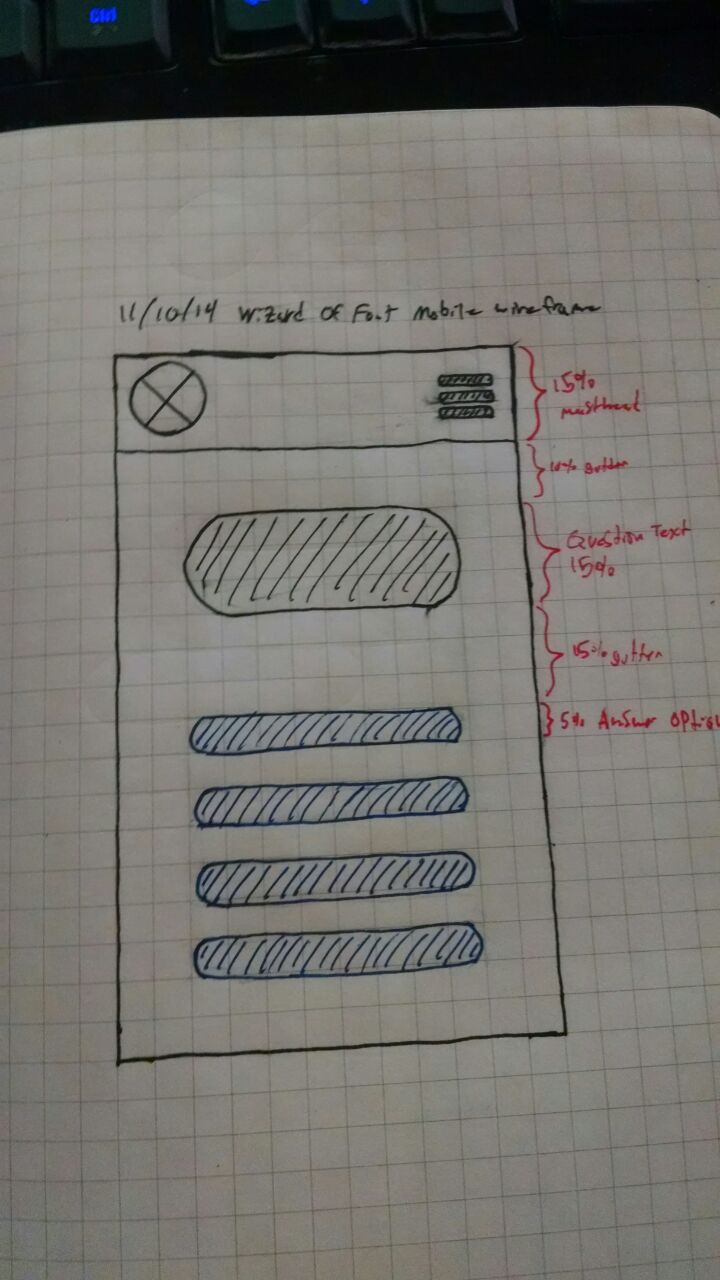 Ctrl
11/10/14 Wizard Of Font Mobile wireframe
15%
masthead
10% gutter
Question Text
15%
15% gutter
5% Answer Option